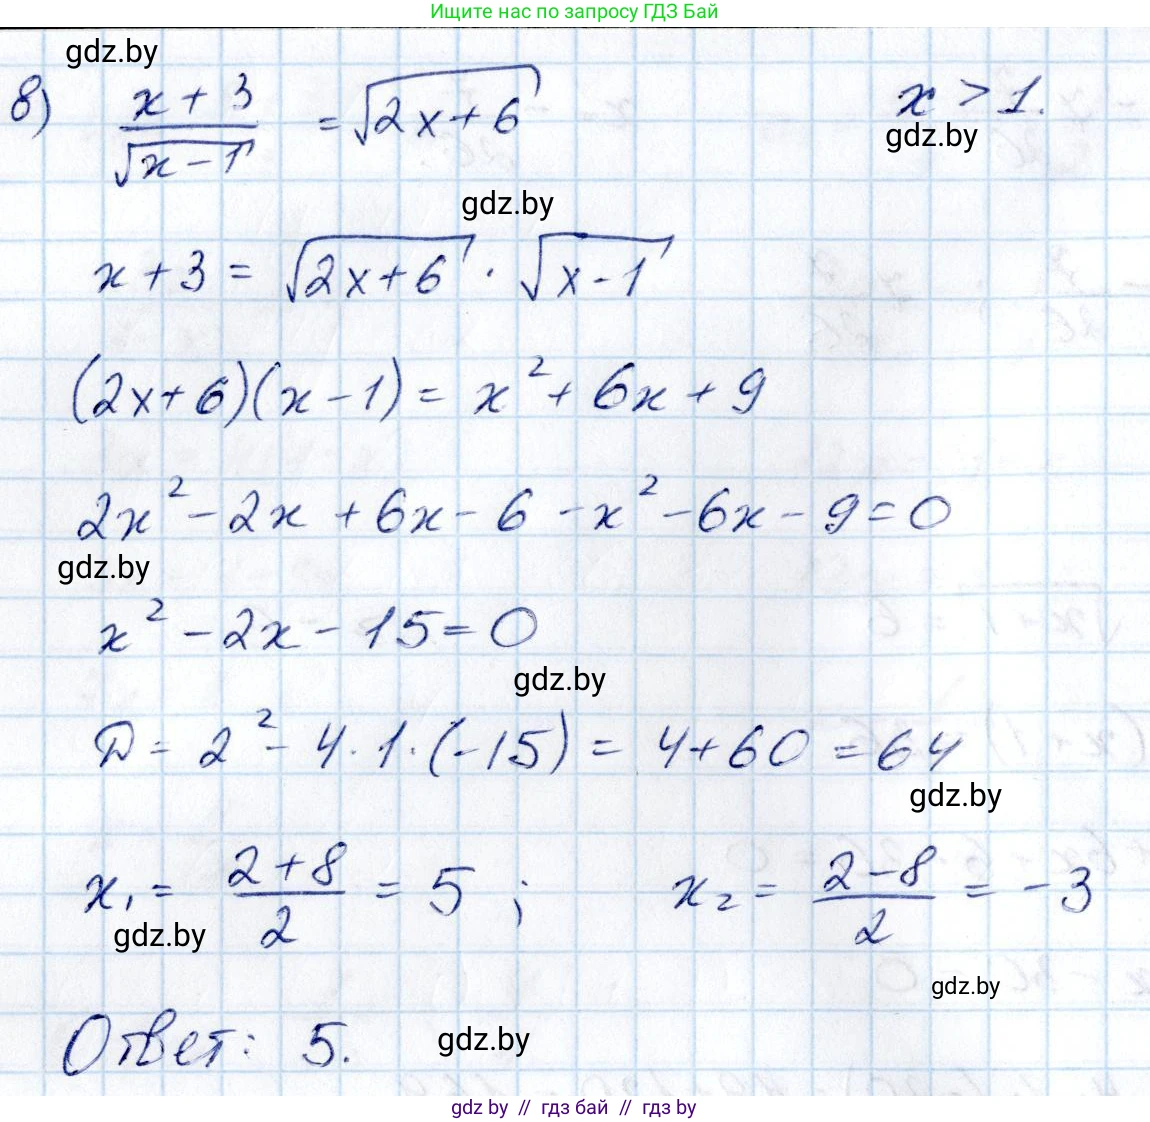 Ищите нас по запросу ГДЗ Бай
gdz.by
8) (x + 3)/√(x − 1) = √(2x + 6) x > 1.
gdz.by
gdz.by
x + 3 = √(2x + 6) · √(x − 1)
(2x + 6)(x − 1) = x² + 6x + 9
2x² − 2x + 6x − 6 − x² − 6x − 9 = 0
gdz.by
x² − 2x − 15 = 0
gdz.by
D = 2² − 4 · 1 · (−15) = 4 + 60 = 64
gdz.by
x₁ = (2 + 8)/2 = 5 ; x₂ = (2 − 8)/2 = −3
gdz.by
gdz.by
Ответ: 5.
gdz.by
gdz by // гдз бай // гдз by